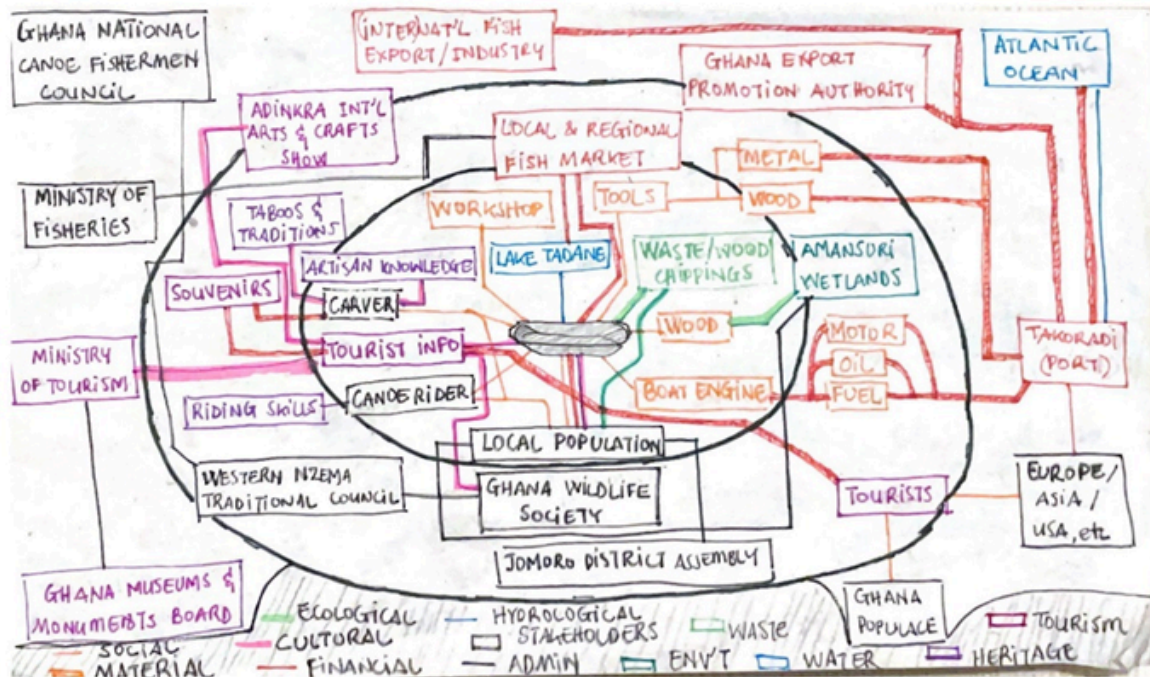 GHANA NATIONAL
CANOE FISHERMEN
COUNCIL
INTERNAT'L FISH
EXPORT/INDUSTRY
GHANA EXPORT
PROMOTION AUTHORITY
ATLANTIC
OCEAN
ADINKRA INT'L
ARTS & CRAFTS
SHOW
LOCAL & REGIONAL
FISH MARKET
METAL
MINISTRY OF
FISHERIES
TABOOS &
TRADITIONS
WORKSHOP
TOOLS
WOOD
ARTISAN KNOWLEDGE
LAKE TADANE
WASTE/WOOD
CHIPPINGS
AMANSURI
WETLANDS
SOUVENIRS
CARVER
WOOD
MOTOR
TAKORADI
(PORT)
MINISTRY
OF TOURISM
TOURIST INFO
OIL
RIDING SKILLS
CANOE RIDER
BOAT ENGINE
FUEL
LOCAL POPULATION
WESTERN NZEMA
TRADITIONAL COUNCIL
GHANA WILDLIFE
SOCIETY
TOURISTS
EUROPE/
ASIA/
USA, etc
JOMORO DISTRICT ASSEMBLY
GHANA MUSEUMS &
MONUMENTS BOARD
GHANA
POPULACE
ECOLOGICAL
HYDROLOGICAL
STAKEHOLDERS
WASTE
TOURISM
SOCIAL
CULTURAL
MATERIAL
FINANCIAL
ADMIN
ENV'T
WATER
HERITAGE